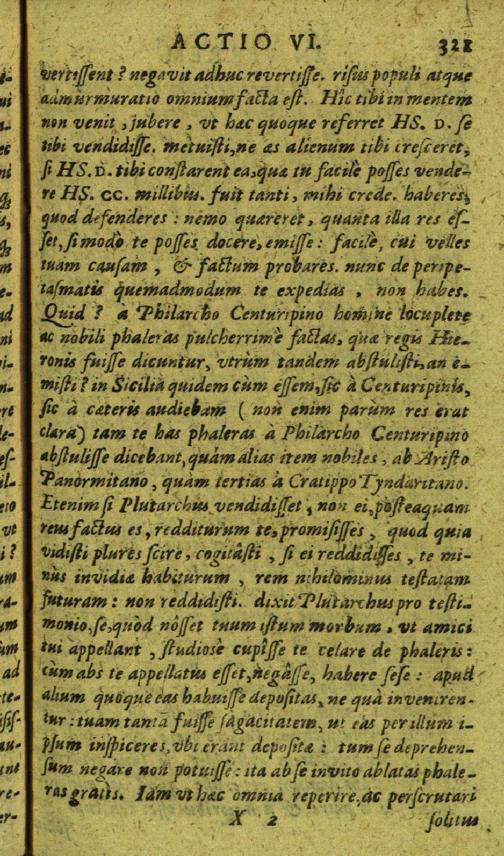 ACTIO VI. 321
vertissent? negavit adhuc revertisse. risus populi atque
admurmuratio omnium facta est. Hîc tibi in mentem
non venit, jubere, vt hæc quoque referret HS. D. se
tibi vendidisse. metuisti, ne æs alienum tibi cresceret,
si HS. D. tibi constarent ea, quæ tu facilè posses vende-
re HS. CC. millibus. fuit tanti, mihi crede. haberes,
quod defenderes: nemo quæreret, quanta illa res es-
set, si modò te posses docere, emisse: facilè, cui velles
tuam causam, & factum probares. nunc de peripe-
tasmatis quemadmodum te expedias, non habes.
Quid? a Philarcho Centuripino homine locuplete
ac nobili phaleras pulcherrimè factas, quæ regis Hie-
ronis fuisse dicuntur, vtrùm tandem abstulisti, an è-
misti? in Sicilia quidem cùm essem, sic à Centuripinis,
sic à cæteris audiebam (non enim parùm res erat
clara) tam te has phaleras à Philarcho Centuripino
abstulisse dicebant, quàm alias item nobiles, ab Aristo
Panormitano, quàm tertias à Cratippo Tyndaritano.
Etenim si Plutarchus vendidisset, non ei, posteaquam
reus factus es, redditurum te, promisisses, quod quia
vidisti plures scire, cogitâsti, si ei reddidisses, te mi-
nùs invidiæ habiturum, rem nihilominus testatam
futuram: non reddidisti. dixit Plutarchus pro testi-
monio, se, quòd nôsset tuum istum morbum, vt amici
tui appellant, studiosè cupîsse te celare de phaleris:
cùm abs te appellatus esset, negâsse, habere sese: apud
alium quoque eas habuisse depositas, ne quà inveniren-
tur: tuam tantâ fuisse sagacitatem, ut eas per illum i-
psum inspiceres, vbi erant depositæ: tum se deprehen-
sum negare non potuisse: ita ab se invito ablatas phale-
ras gratis. Iam vt hæc omnia reperire, ac perscrutari
X 2 solitus